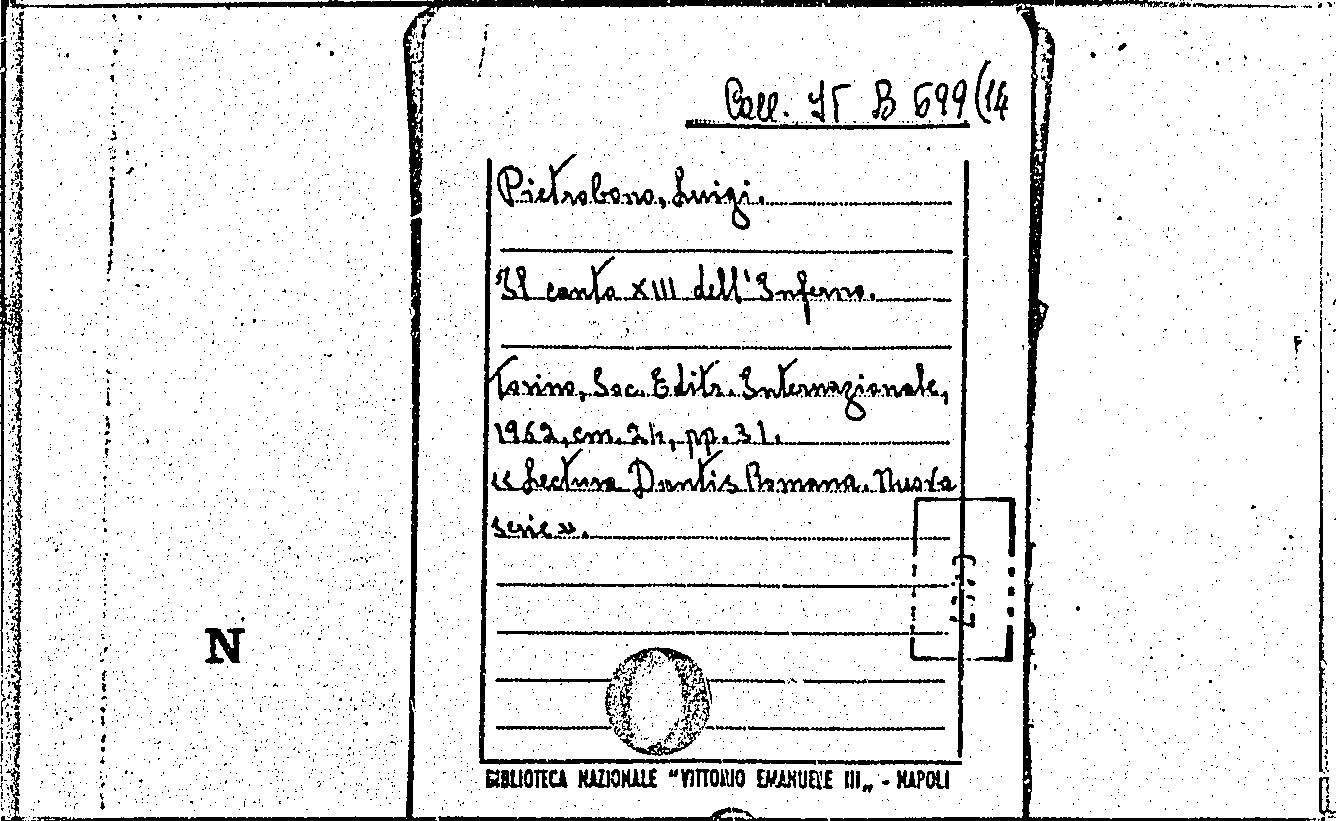 Coll. IT B 699(14
Pietrobono, Luigi.
Il canto XIII dell'Inferno.
Torino, Soc. Editr. Internazionale,
1962, cm. 24, pp. 31.
« Lectura Dantis Romana. Nuova
serie ».
N
BIBLIOTECA NAZIONALE "VITTORIO EMANUELE III„ - NAPOLI